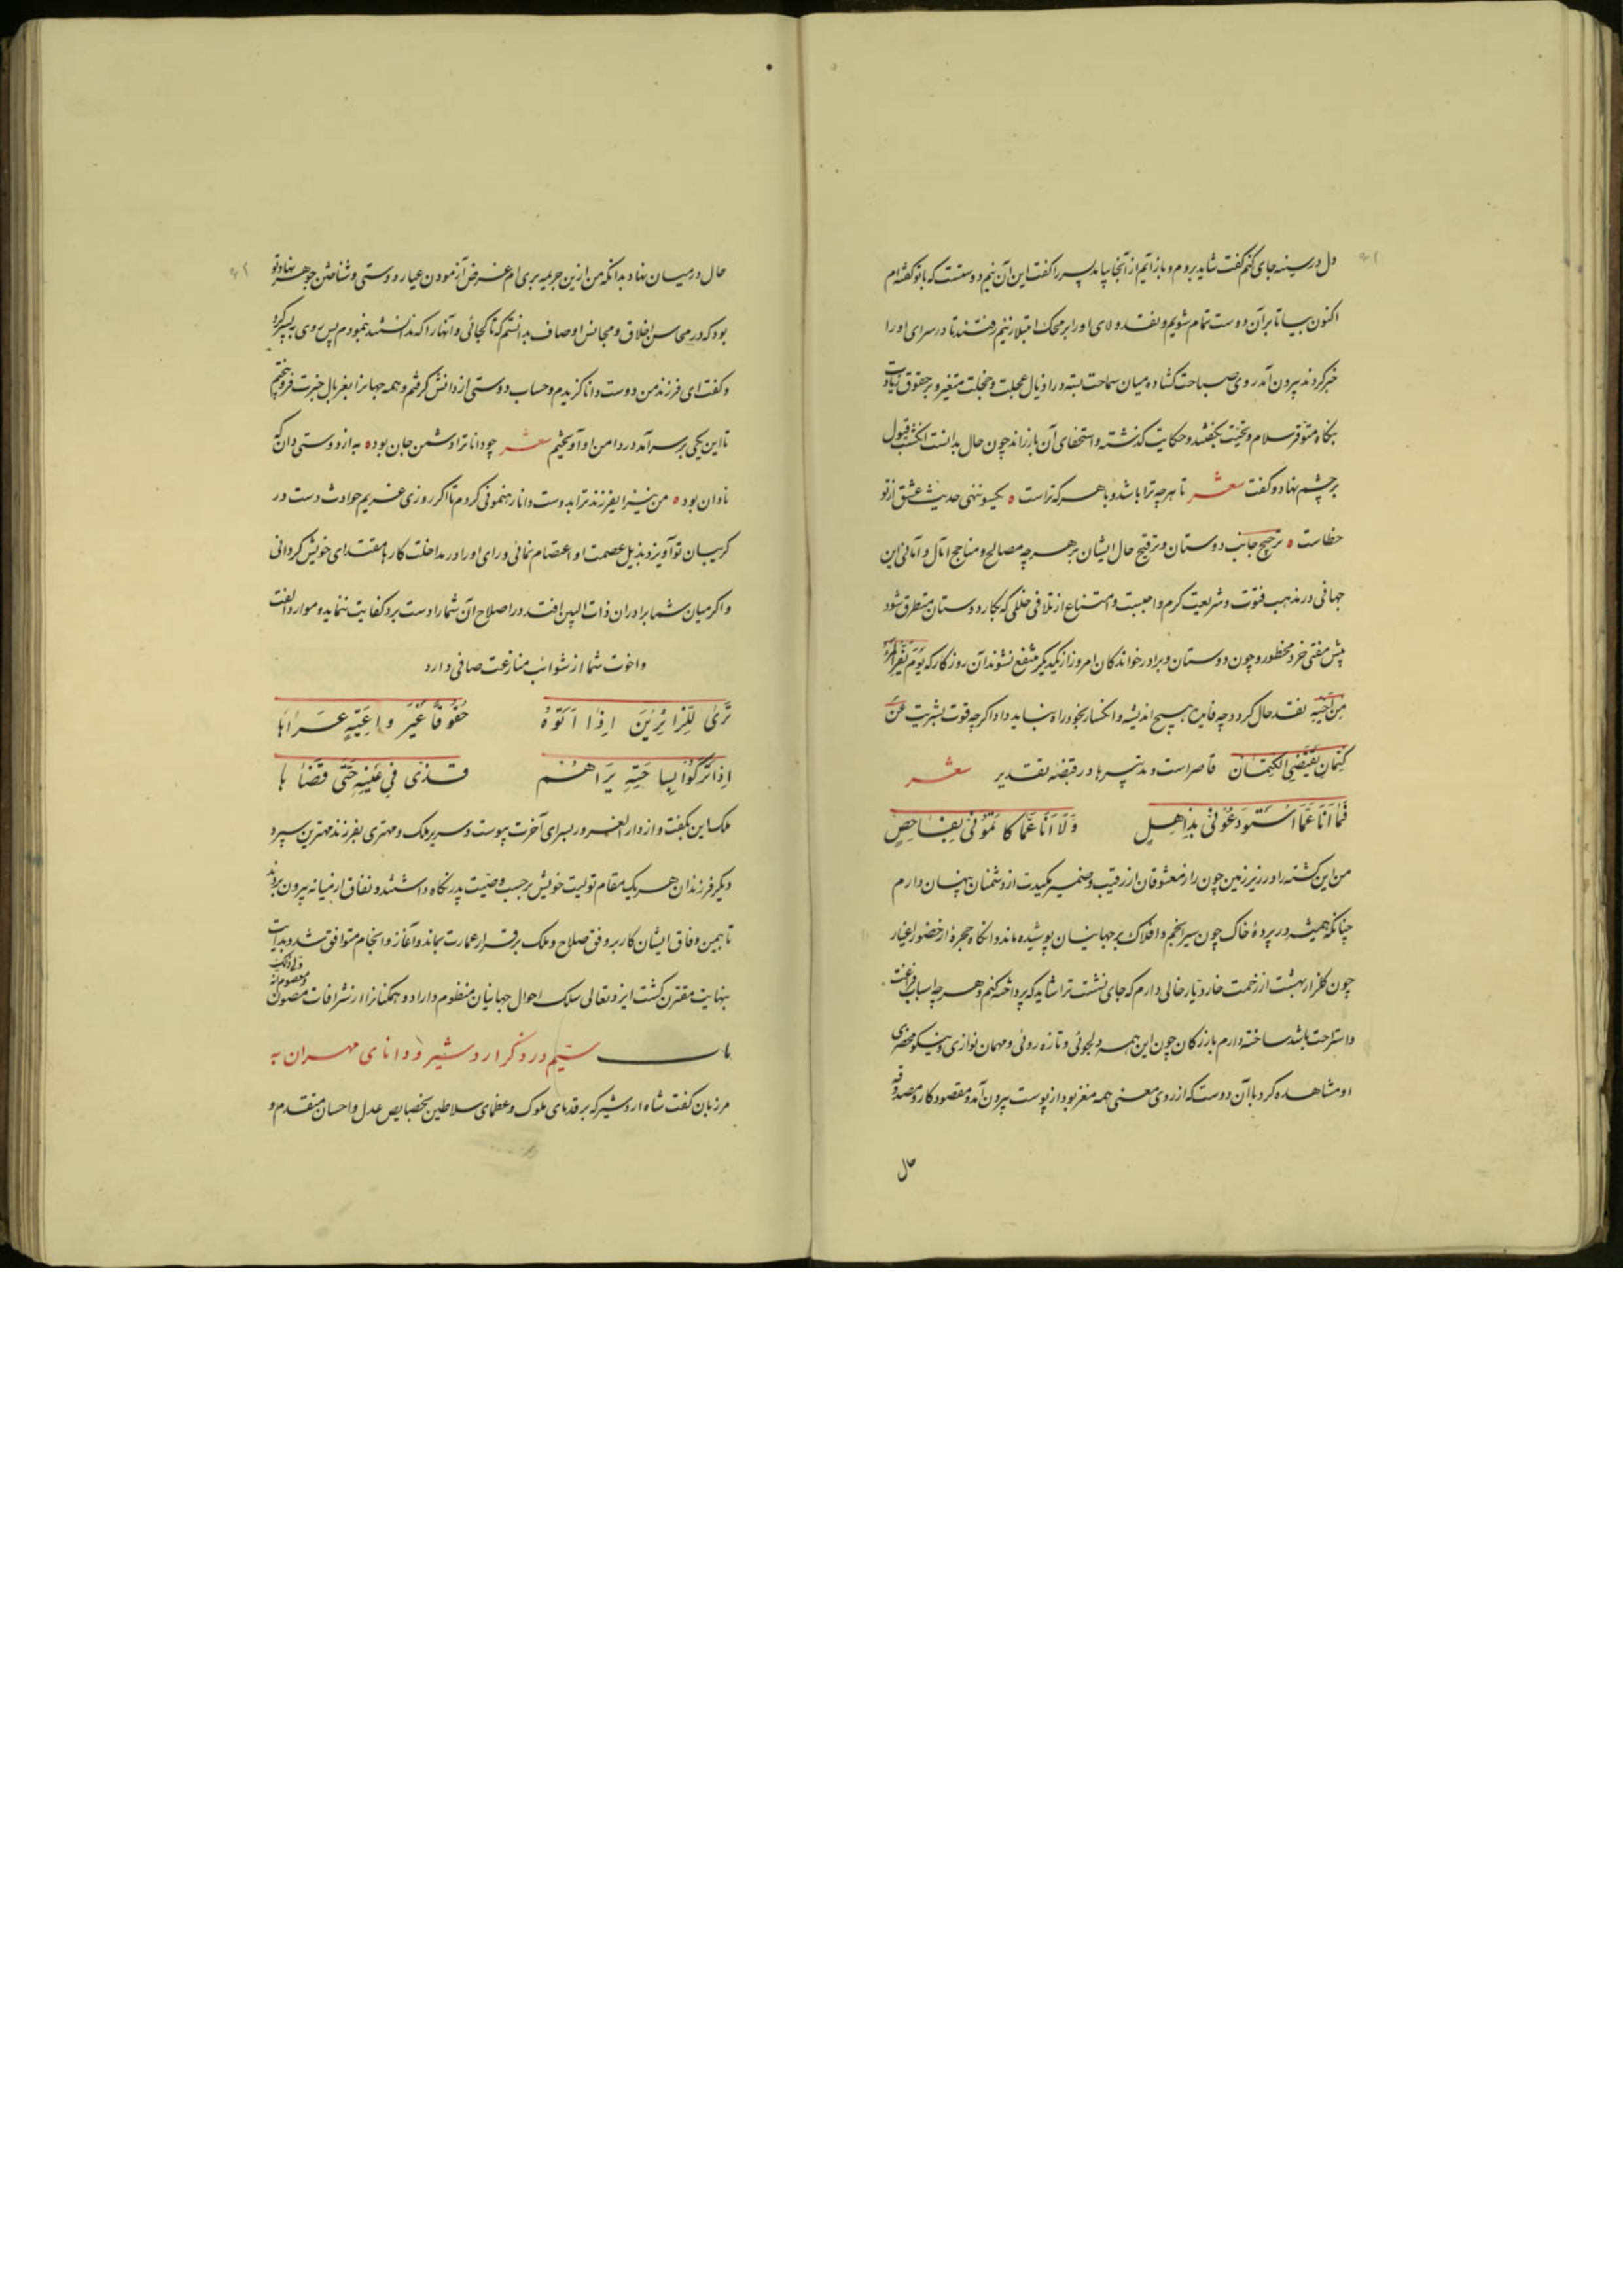 دل در سینه جای کنم گفت شاید بروم و بازآیم از آنجا بیامد پسر را گفت این آن نیم دوستست که با تو گفته‌ام
اکنون بیا تا بر آن دوست تمام شویم و نقد ولای او را بر محک ابتلا زنیم رفتند تا در سرای او را
خبر کردند بیرون آمد روی صباحت گشاده میان سماحت بسته در اذیال عجلت و خجلت متعثر و بر حقوق زیارت
بیگاه متوفر سلام و تحیت بگفتند و حکایت گذشته و استخفای آن باز راند چون حال بدانست انگشت قبول
بر چشم نهاد و گفت شعر تا هرچه ترا باشد و با هرکه تراست ه یکسو ننهی حدیث عشق از تو
خطاست ه ترجیح جانب دوستان و ترقیح حال ایشان بر هرچه مصالح و مناجح آمال و امانی این
جهانی در مذهب فتوت و شریعت کرم واجبست و امتناع از تلافی خللی که بکار دوستان متطرق شود
پیش مفتی خرد محظور و چون دوستان و برادرخواندگان امروز از یکدیگر منتفع نشوند آن روزگار که یَوْمَ یَفِرُّ الْمَرْءُ
مِنْ اَخیهِ نقد حال گردد چه فایده هیچ اندیشه و انکسار بخود راه نباید داد اگرچه قوت بشریت عن
کتمان یقتضی الکتمان قاصر است و تدبیرها در قبضه تقدیر شعر
فَمَا اَنَا عَمَّا اسْتَوْدَعُونی بِذاهِلٍ وَلَا اَنَا عَمَّا کاتَمُونی بِفَاحِصٍ
من این کشته را در زیر زمین چون راز معشوقان از رقیب و ضمیر مکیدت از دشمنان پنهان دارم
چنانکه همیشه در پردهٔ خاک چون سیر انجم و افلاک بر جهانیان پوشیده ماند و آنگاه حجره از حضور اغیار
چون گلزار بهشت از زحمت خار دیار خالی دارم که جای نشست ترا شاید که پرداخته کنم و هرچه اسباب فراغت
و استراحت باشد ساخته دارم بازرگان چون این همه دلجوئی و تازه روئی و مهمان نوازی و نیکو محضری
او مشاهده کرد با آن دوست که از روی معنی همه مغز بود از پوست بیرون آمد و مقصود کار و مصدوقه
حال
حال در میان نهاد بدانکه من ازین جریمه بری‌ام غرض آزمودن عیار دوستی و شناختن جوهر نهاد تو
بود که در محاسن اخلاق و مجانس اوصاف بدانستم که تا کجائی و آنها را که ندانستند بنمودم پس روی بپسر کرد
و گفت ای فرزند من دوست دانا گزیدم و حساب دوستی از دانش گرفتم و همه جهانرا بغربال خبرت فرو بیختم
تا این یکی بر سر آمد در دامن او آویختم شعر چو دانا ترا دشمن جان بود ه به از دوستی دان که
نادان بود ه من نیز ای فرزند ترا بدوست دانا رهنمونی کردم تا اگر روزی غریم حوادث دست در
گریبان تو آویزد بذیل عصمت او اعتصام نمائی و رای او را در مداخلت کارها مقتدای خویش گردانی
و اگر میان شما برادران ذات البین افتد در اصلاح آن شما را دست برد کفایت نماید و موارد الفت
و اخوت شما از شوائب منازعت صافی دارد
تَری لِلزّائِرینَ اِذا اَتَوْهُ حُقُوقاً غَیْرَ واعِیَةٍ عَراها
اِذا تَرَکُوا بِساحَتِهِ یَراهُمْ قَذیً فی عَیْنِهِ حَتّی قَضاها
ملک این بگفت و از دار الغرور بسرای آخرت پیوست و سریر ملک و مهتری بفرزند مهترین سپرد
دیگر فرزندان هر یک مقام تولیت خویش بر حسب وصیت پدر نگاه داشتند و نفاق از میانه بیرون بردند
تا بیمن وفاق ایشان کار بر وفق صلاح و ملک بر قرار عمارت بماند و آغاز و انجام متوافق شد و بدایت
بنهایت مقترن گشت ایزد تعالی سلک احوال جهانیان منظوم داراد و همگنانرا از شر آفات مصون
باب سیم در ذکر اردشیر و دانای مهران به
مرزبان گفت شاه اردشیر که بر قدمای ملوک و عظمای سلاطین بخصایص عدل و احسان متقدم و